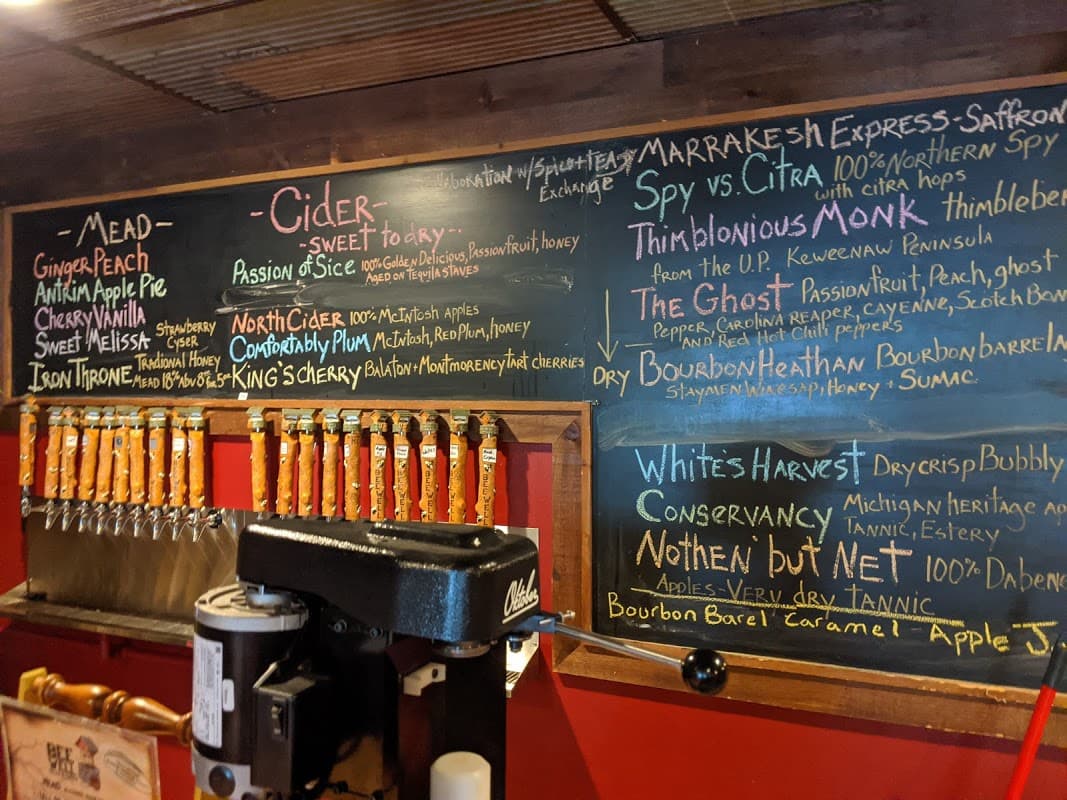 - MEAD -
Ginger Peach
Antrim Apple Pie
Cherry Vanilla
Sweet Melissa Strawberry Cyser
Iron Throne Tradional Honey
Mead 18% Abv
- Cider -
- sweet to dry -
Passion of Sice 100% Golden Delicious, Passionfruit, honey
Aged on Tequila staves
North Cider 100% McIntosh apples
Comfortably Plum McIntosh, Red Plum, honey
King's Cherry Balaton + Montmorency tart cherries
w/Spice + Tea
Exchange
Marrakesh Express - Saffron
Spy vs. Citra 100% Northern Spy
with citra hops
Thimblonious Monk
from the U.P. Keweenaw Peninsula
The Ghost Passionfruit, Peach, ghost
Pepper, Carolina Reaper, cayenne, Scotch
and Red Hot Chili peppers
Dry Bourbon Heathan Bourbon barrel
Staymen Winesap, Honey + Sumac
White's Harvest Dry crisp Bubbly
Conservancy Michigan heritage
Tannic, Estery
Nothen' but Net 100%
Apples - Very dry tannic
Bourbon Barel Caramel - Apple J
Oktober
BEE
WELL
MEAD